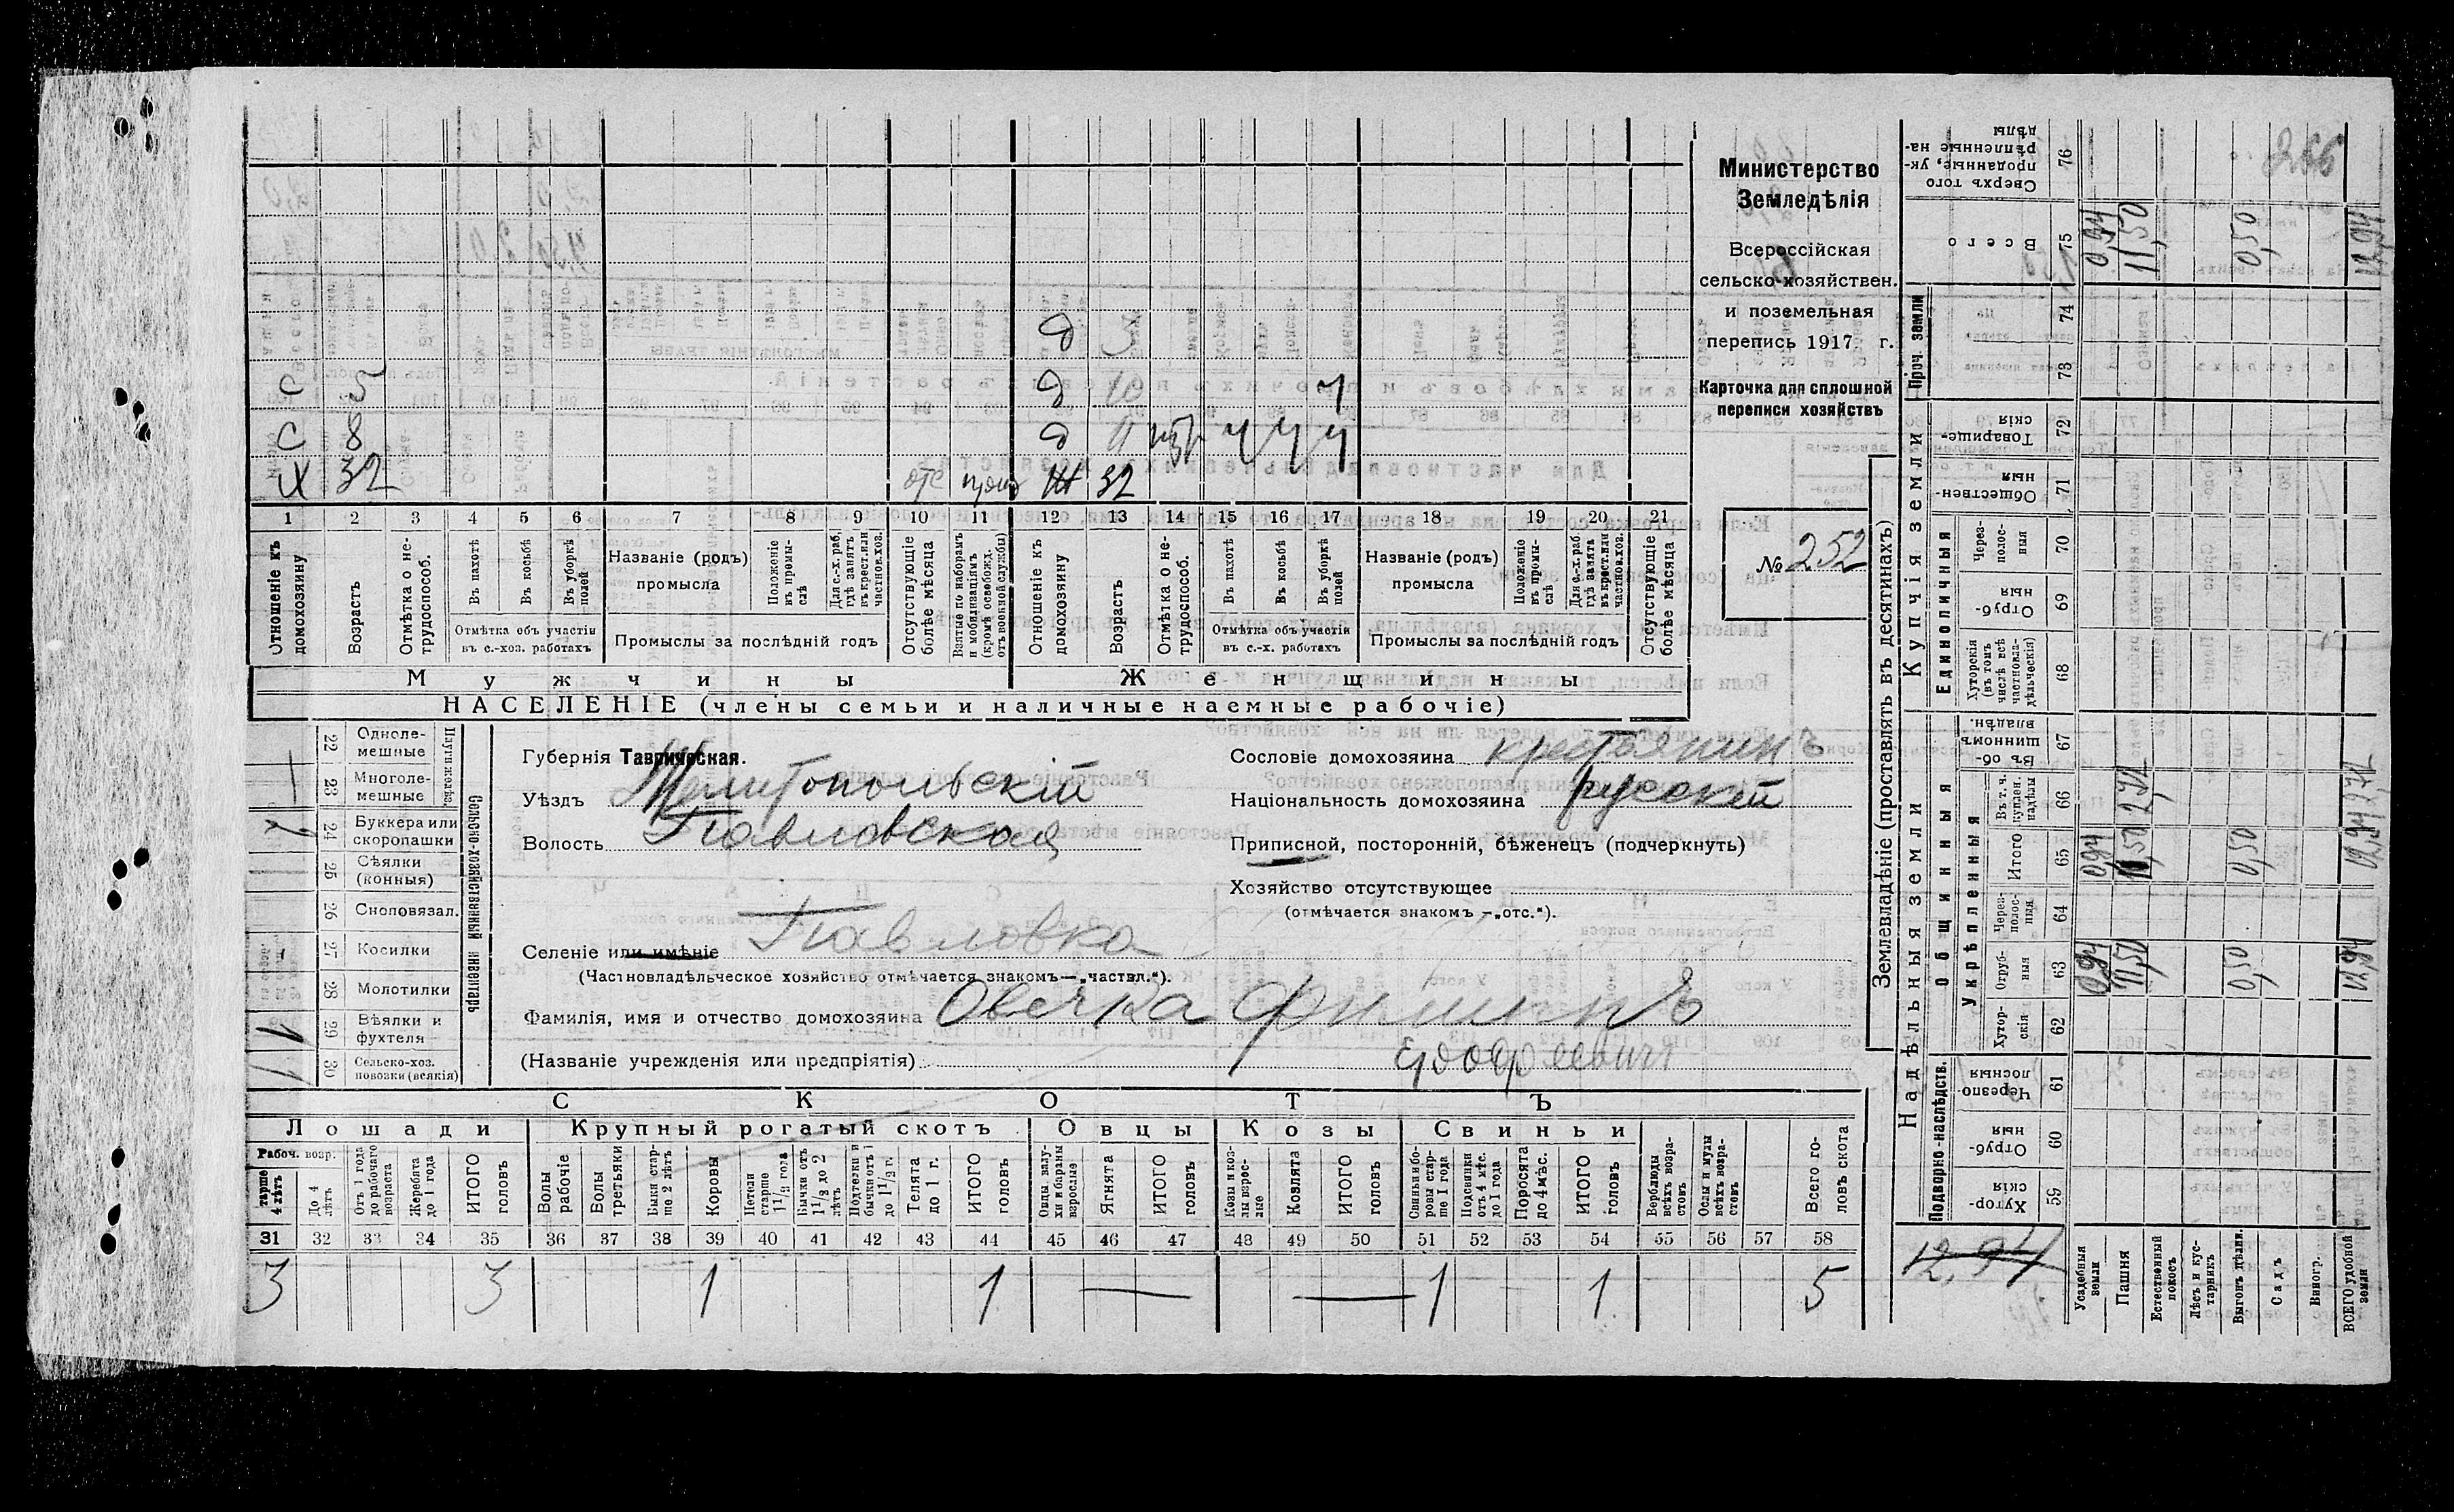 Министерство
Земледѣлія
Всероссійская
сельско-хозяйствен.
и поземельная
перепись 1917 г.
Карточка для сплошной
переписи хозяйствъ
№ 252
д 3
С 5 д 10 ч
С 8 д 11 ч ч ч
Х 32 отс Ж 32
1 2 3 4 5 6 7 8 9 10 11 12 13 14 15 16 17 18 19 20 21
Отношеніе къ домохозяину
Возрастъ
Отмѣтка о нетрудоспособ.
Въ пахотѣ
Въ косьбѣ
Въ уборкѣ полей
Отмѣтка объ участіи въ с.-хоз. работахъ
Названіе (родъ) промысла
Положеніе въ промыслѣ
Для с.-х. раб. гдѣ занятъ въ крест. или частнов. хоз.
Промыслы за послѣдній годъ
Отсутствующіе болѣе мѣсяца
Взятые по наборамъ и мобилизаціямъ (кромѣ освобожд. отъ военной службы)
Отношеніе къ домохозяину
Возрастъ
Отмѣтка о нетрудоспособ.
Въ пахотѣ
Въ косьбѣ
Въ уборкѣ полей
Отмѣтка объ участіи въ с.-х. работахъ
Названіе (родъ) промысла
Положеніе въ промыслѣ
Для с.-х. раб. гдѣ занята въ крест. или частнов. хоз.
Промыслы за послѣдній годъ
Отсутствующіе болѣе мѣсяца
Мужчины Женщины
НАСЕЛЕНІЕ (члены семьи и наличные наемные рабочіе)
Сельско-хозяйственный инвентарь
22 Однолемешные
23 Многолемешные
24 Буккера или скоропашки
25 Сѣялки (конныя)
26 Сноповязал.
27 Косилки
28 Молотилки
29 Вѣялки и фухтеля 1
30 Сельско-хоз. повозки (всякія) 1
Губернія Таврическая.
Уѣздъ Мелитопольскій
Волость Павловская
Селеніе или имѣніе Павловка
(Частновладѣльческое хозяйство отмѣчается знакомъ—„частвл.“).
Фамилія, имя и отчество домохозяина Овечка Филиппъ
(Названіе учрежденія или предпріятія)
Сословіе домохозяина крестьянинъ
Національность домохозяина русскій
Приписной, посторонній, бѣженецъ (подчеркнуть)
Хозяйство отсутствующее
(отмѣчается знакомъ —„отс.“).
СКОТЪ
Лошади Крупный рогатый скотъ Овцы Козы Свиньи
Рабоч. возр.
старше 4 лѣтъ
До 4 лѣтъ
Отъ 1 года до рабочаго возраста
Жеребята до 1 года
ИТОГО головъ
Волы рабочіе
Волы третьяки
Быки старше 2 лѣтъ
Коровы
Нетели старше 1 1/2 года
Бычки отъ 1 1/2 до 2 лѣтъ
Подтелки и бычки отъ 1 до 1 1/2 г.
Телята до 1 г.
ИТОГО головъ
Овцы валухи и бараны взрослые
Ягнята
ИТОГО головъ
Козы и козлы взрослые
Козлята
ИТОГО головъ
Свиньи и боровы старше 1 года
Подсвинки отъ 4 мѣс. до 1 года
Поросята до 4 мѣс.
ИТОГО головъ
Верблюды всѣхъ возрастовъ
Ослы и мулы всѣхъ возрастовъ
Всего головъ скота
31 32 33 34 35 36 37 38 39 40 41 42 43 44 45 46 47 48 49 50 51 52 53 54 55 56 57 58
3 3 1 1 — — 1 1 5
Землевладѣніе (проставлять въ десятинахъ)
Надѣльныя земли Купчія земли Проч. земли
Подворно-наслѣдств.
Общинныя
Укрѣпленныя
Единоличныя
Хуторскія 59
Отрубныя 60
Черезполосныя 61
Хуторскія 62
Отрубныя 63
Черезполосныя 64
Итого 65
Въ т. ч. куплен. надѣлы 66
Въ общинномъ владѣн. 67
Хуторскія (въ томъ числѣ всѣ частновладѣльческія) 68
Отрубныя 69
Черезполосныя 70
Общественныя 71
Товарищескія 72
73
74
Всего 75
Сверхъ того проданные, укрѣпленные надѣлы 76
12,94
Усадебныя земли 0,94 0,94 0,94
Пашня 11,50 11,50 2,72 11,50
Естественный покосъ
Лѣсъ и кустарникъ
Выгонъ дѣлян. 0,50 0,50 0,50
Садъ
Виногр.
ВСЕГО удобной земли 12,94 12,94 2,72 12,94